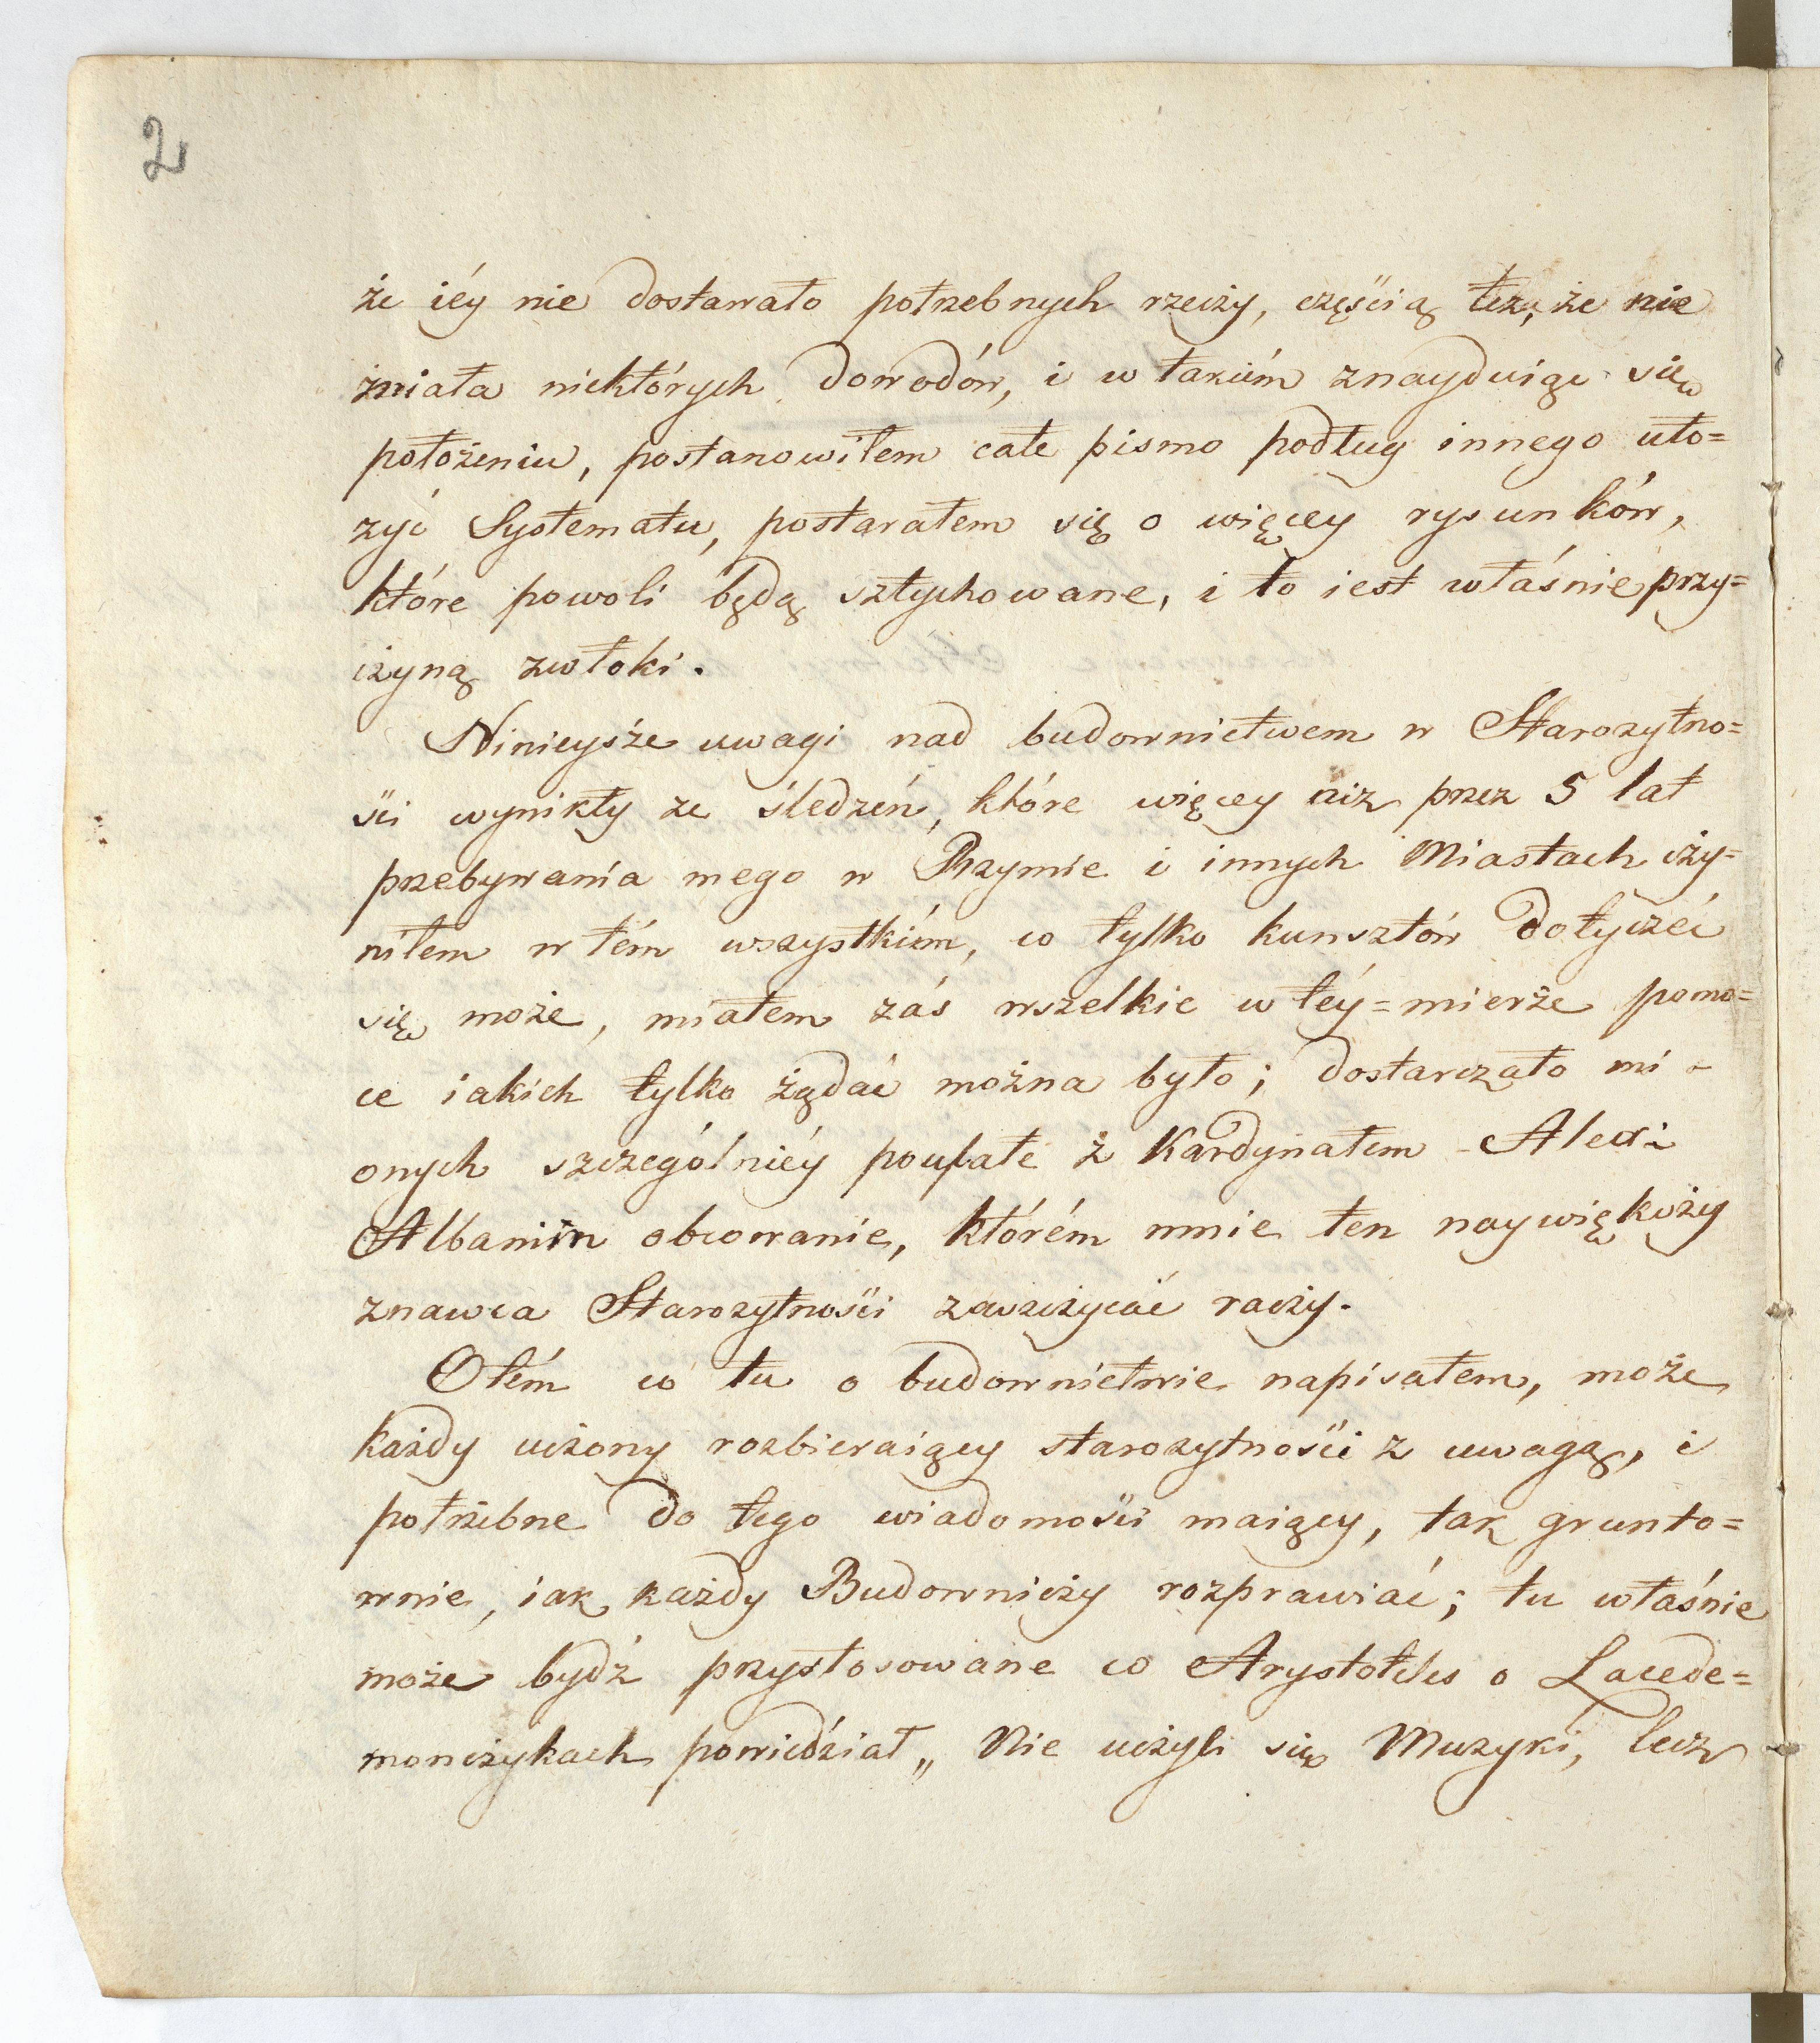 2
że iéy nie dostawało potrzebnych rzeczy, częścią też, że nie
miała niektórych dowodów, i w takiém znayduiąc się
położeniu, postanowiłem całe pismo podług innego uło=
zyć Systematu, postarałem się o więcey rysunków,
które powoli będą sztychowane, i to iest właśnie przy=
czyną zwłoki.
Ninieysze uwagi nad budownictwem w Starozytno=
ści wynikły ze śledzeń, które więcey niz przez 5 lat
przebywania mego w Rzymie i innych Miastach czy=
niłem w tém wszystkiém, co tylko kunsztów dotyczéć
się może, miałem zaś wszelkie w téy=mierze pomo=
ce iakich tylko żądać można było; dostarczało mi
onych szczególniéy poufałe z Kardynałem Alexi
Albanim obcowanie, którém mnie ten naywiększy
znawca Starozytności zaszczycać raczy.
O tém co tu o budownictwie napisałem, może
każdy uczony rozbieraiący starozytności z uwagą, i
potrzebne do tego wiadomości maiący, tak grunto=
wnie, iak każdy Budowniczy rozprawiać; tu właśnie
może bydź przystosowane co Arystoteles o Lacede=
mończykach powiedział „ Nie uczyli się Muzyki, lecz